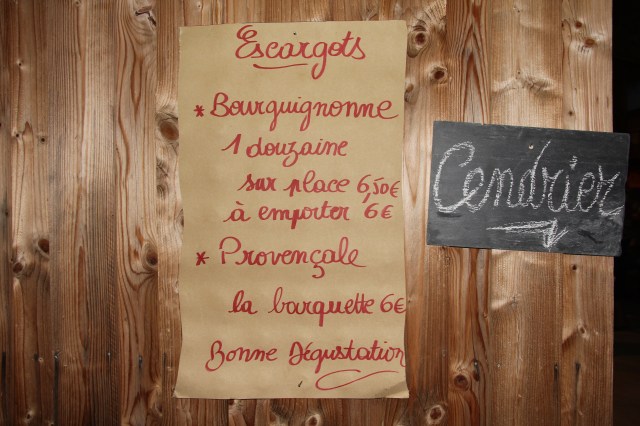 Escargots
* Bourguignonne
1 douzaine
sur place 6,50€
à emporter 6€
* Provençale
la barquette 6€
Bonne Dégustation
Cendrier